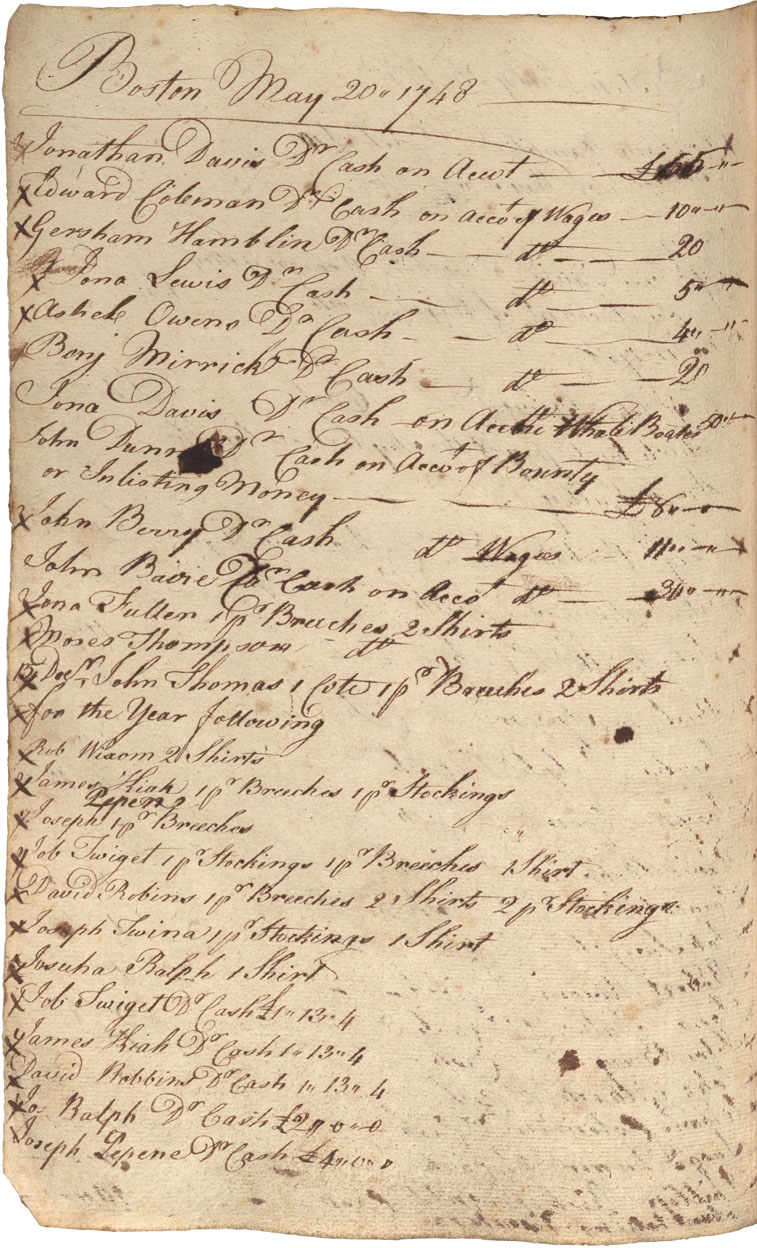 Boston May 20" 1748
x Jonathan Davis Dr Cash on Accot — — £65 "–"
x Edward Coleman Dr Cash on accot of Wages — 10 "–"
x Gersham Hamblin Dr Cash — do — — 20
x Jona Lewis Dr Cash — — do — — 5 "
x Ashel Owens Dr Cash — — do — — 4 " – "
Benj Mirrick Dr Cash — do — — 20
Jona Davis Dr Cash on Accot Whale Boates 50 "
John Dunn Dr Cash on Accot of Bounty
or Inlisting Money — — £8 " – o
x John Berry Dr Cash do Wages — 11 " – "
John Dr Cash on Acco do — 30 " – " –
x Jona Fuller 1 pr Breeches 2 Shirts
x Moses Thompson do
x Decr John Thomas 1 Cote 1 pr Breeches 2 Shirts
x for the Year following
x Rob Wixom 2 Shirts
x James Kiah 1 pr Breeches 1 pr Stockings
Lepen
x Joseph 1 pr Breeches
x Job Twiget 1 pr Stockings 1 pr Breeches 1 Shirt
x David Robins 1 pr Breeches 2 Shirts 2 pr Stockings
x Joseph Twina 1 pr Stockings 1 Shirt
x Josuha Ralph 1 Shirt
x Job Twiget Dr Cash £1 " 13 " 4
x James Kiah Dr Cash 1 " 13 " 4
x David Robbins Dr Cash 1 " 13 " 4
x Jos Ralph Dr Cash £2 " 0 " 0
x Joseph Lepene Dr Cash £4 " 0 " 0